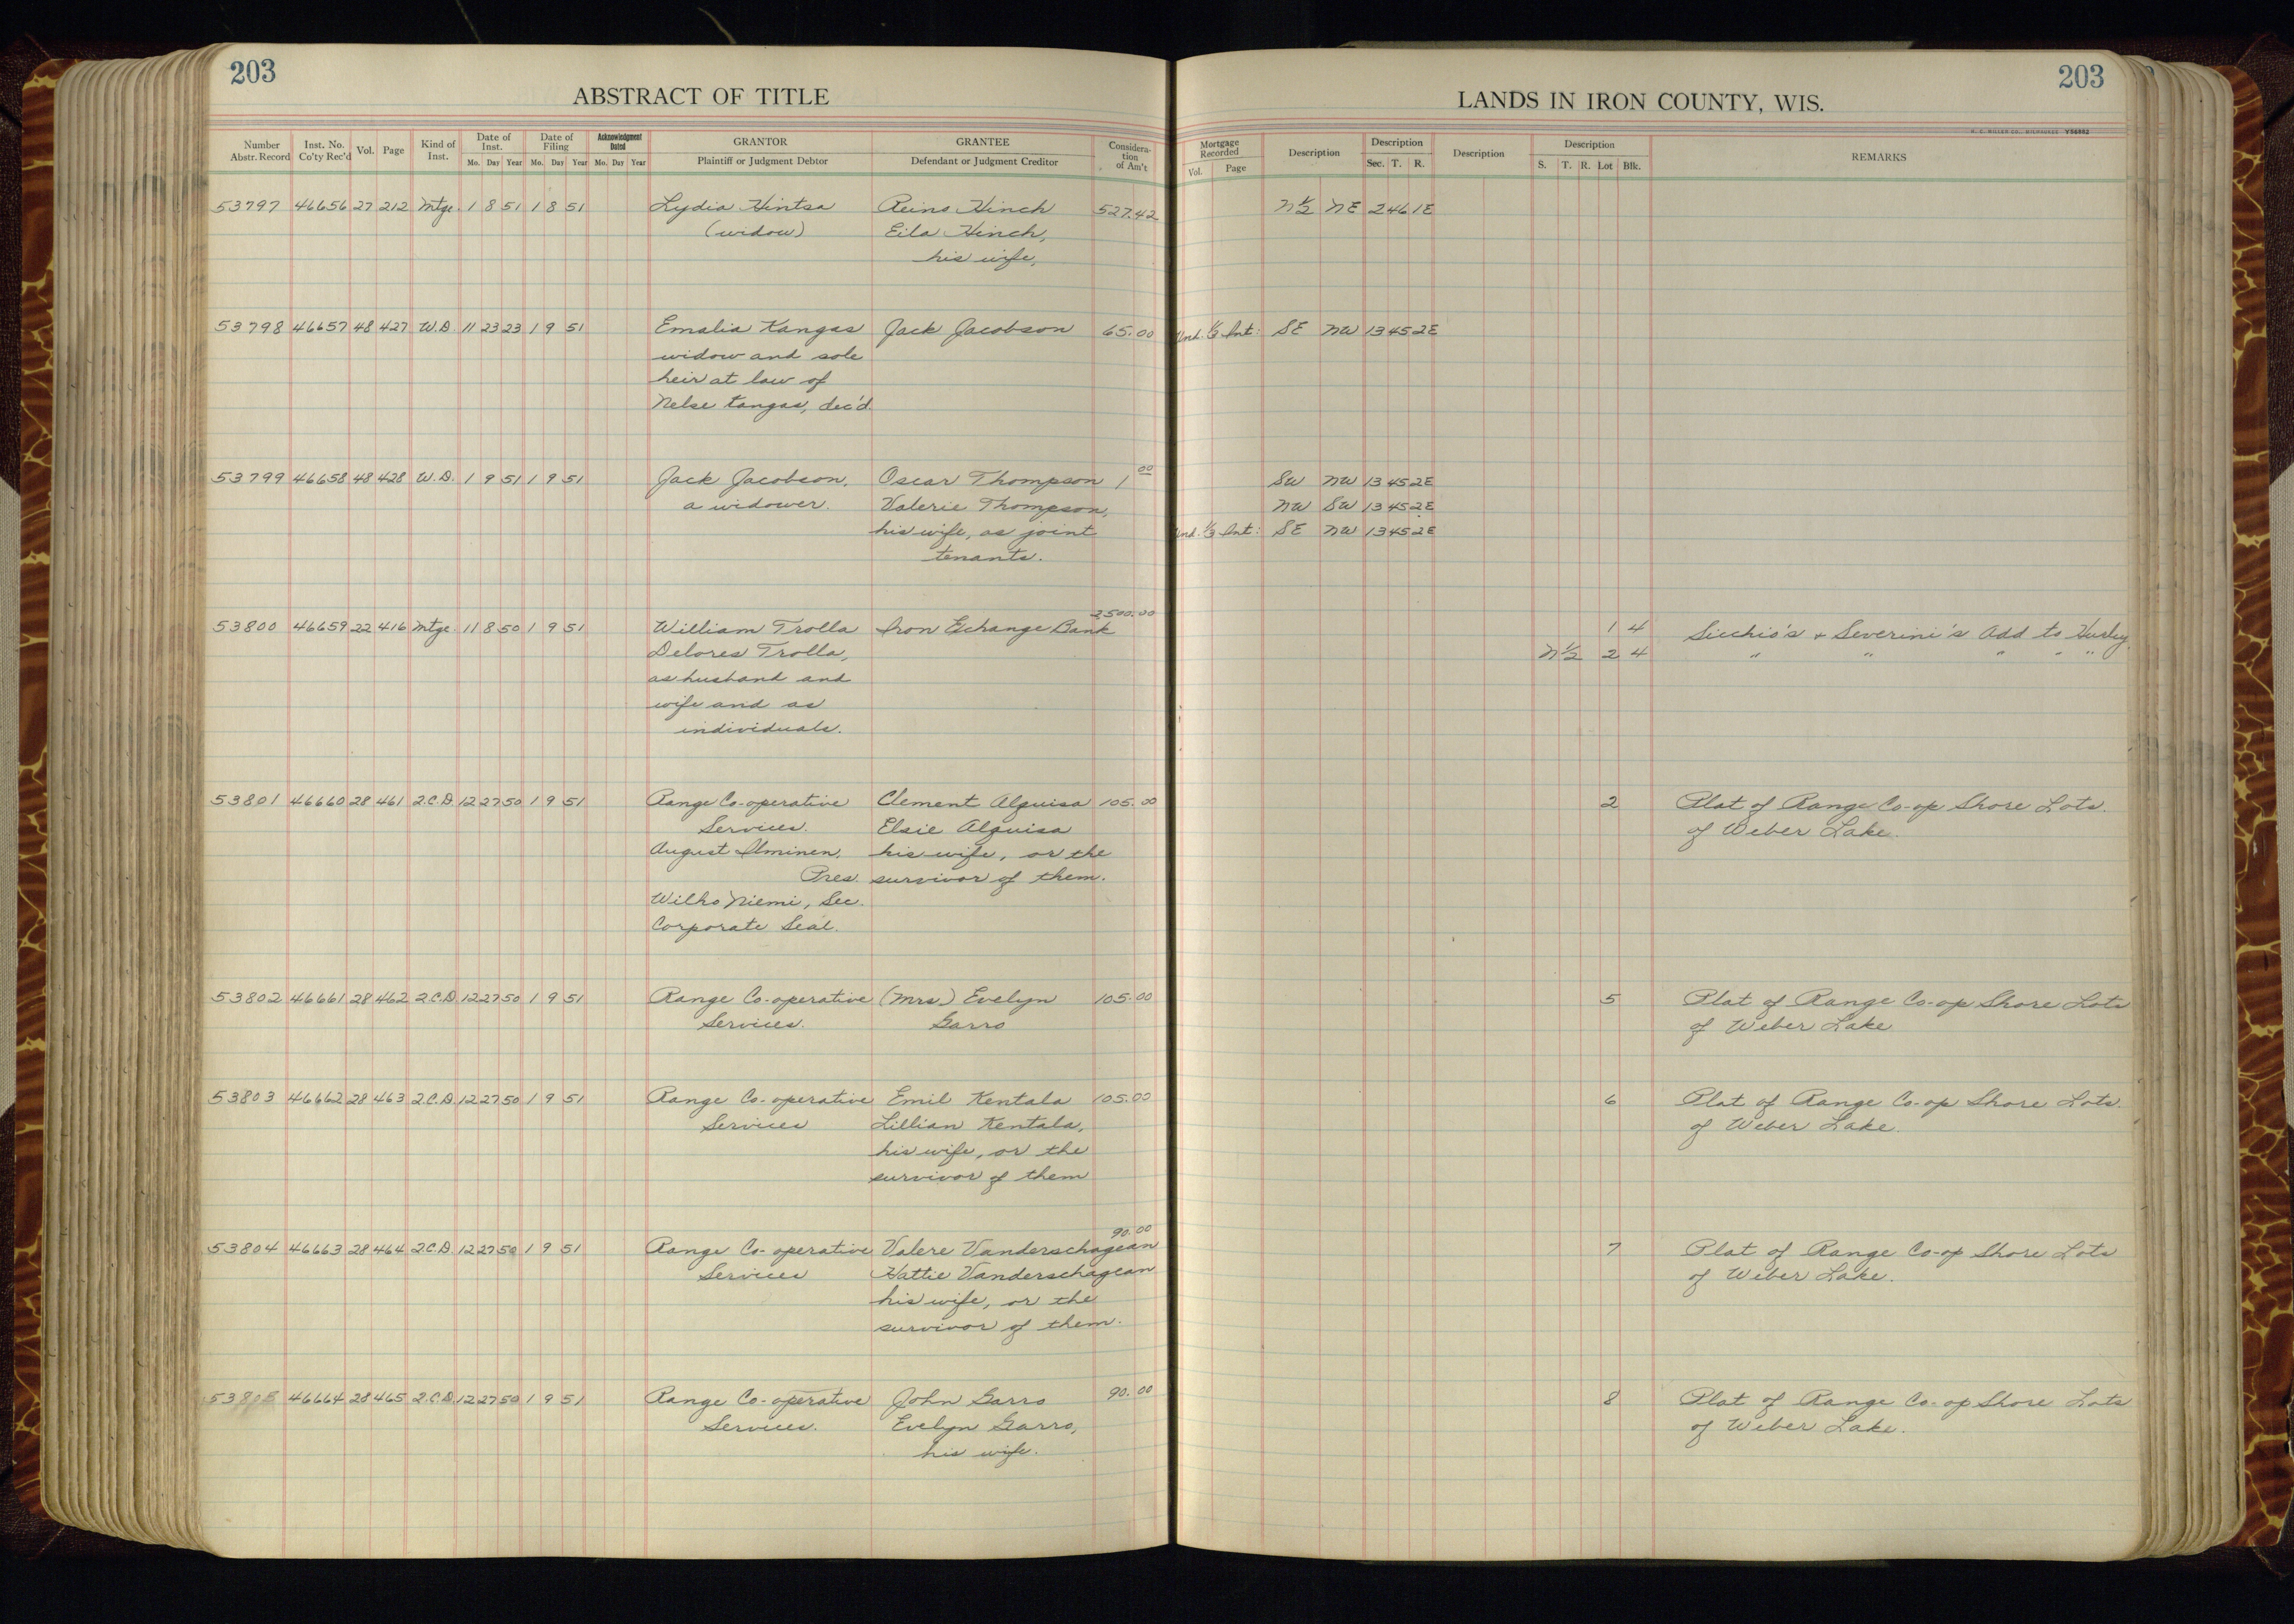 203
ABSTRACT OF TITLE
LANDS IN IRON COUNTY, WIS.
203
Number Abstr. Record Inst. No. Co'ty Rec'd Vol. Page Kind of Inst. Date of Inst. Mo. Day Year Date of Filing Mo. Day Year Acknowledgment Dated Mo. Day Year GRANTOR Plaintiff or Judgment Debtor GRANTEE Defendant or Judgment Creditor Considera-tion of Am't Mortgage Recorded Vol. Page Description Description Sec. T. R. Description Description S. T. R. Lot Blk. REMARKS
Y56882
53797 46656 27 212 Mtge. 1 8 51 1 8 51 Lydia Hintsa Reino Hinch 527.42 N½ NE 2 46 1E
(widow) Eila Hinch,
his wife,
53798 46657 48 427 W.D. 11 23 23 1 9 51 Emalia Kangas Jack Jacobson 65.00 Und. ⅓ Int: SE NW 13 45 2E
widow and sole
heir at law of
Nelse Kangas, dec'd.
53799 46658 48 428 W.D. 1 9 51 1 9 51 Jack Jacobson, Oscar Thompson 1 00 SW NW 13 45 2E
a widower. Valerie Thompson, NW SW 13 45 2E
his wife, as joint Und. ⅓ Int: SE NW 13 45 2E
tenants.
2500.00
53800 46659 22 416 Mtge. 11 8 50 1 9 51 William Trolla Iron Echange Bank 1 4 Sicchio's + Severini's Add to Hurley
Delores Trolla, N½ 2 4 " " " " "
as husband and
wife and as
individuals.
53801 46660 28 461 2.C.D. 12 27 50 1 9 51 Range Co-operative Clement Alquisa 105.00 2 Plat of Range Co-op Shore Lots.
Services. Elsie Alquisa of Weber Lake.
August Ilminen, his wife, or the
Pres. survivor of them.
Wilho Niemi, Sec.
Corporate Seal.
53802 46661 28 462 2.C.D. 12 27 50 1 9 51 Range Co-operative (Mrs.) Evelyn 105.00 5 Plat of Range Co-op Shore Lots
Services. Garro of Weber Lake
53803 46662 28 463 2.C.D. 12 27 50 1 9 51 Range Co-operative Emil Kentala 105.00 6 Plat of Range Co-op Shore Lots.
Services Lillian Kentala, of Weber Lake.
his wife, or the
survivor of them
90.00
53804 46663 28 464 2.C.D. 12 27 50 1 9 51 Range Co-operative Valere Vanderschagean 7 Plat of Range Co-op Shore Lots
Services Hattie Vanderschagean of Weber Lake.
his wife, or the
survivor of them.
53805 46664 28 465 2.C.D. 12 27 50 1 9 51 Range Co-operative John Garro 90.00 8 Plat of Range Co-op Shore Lots
Services. Evelyn Garro, of Weber Lake.
his wife.